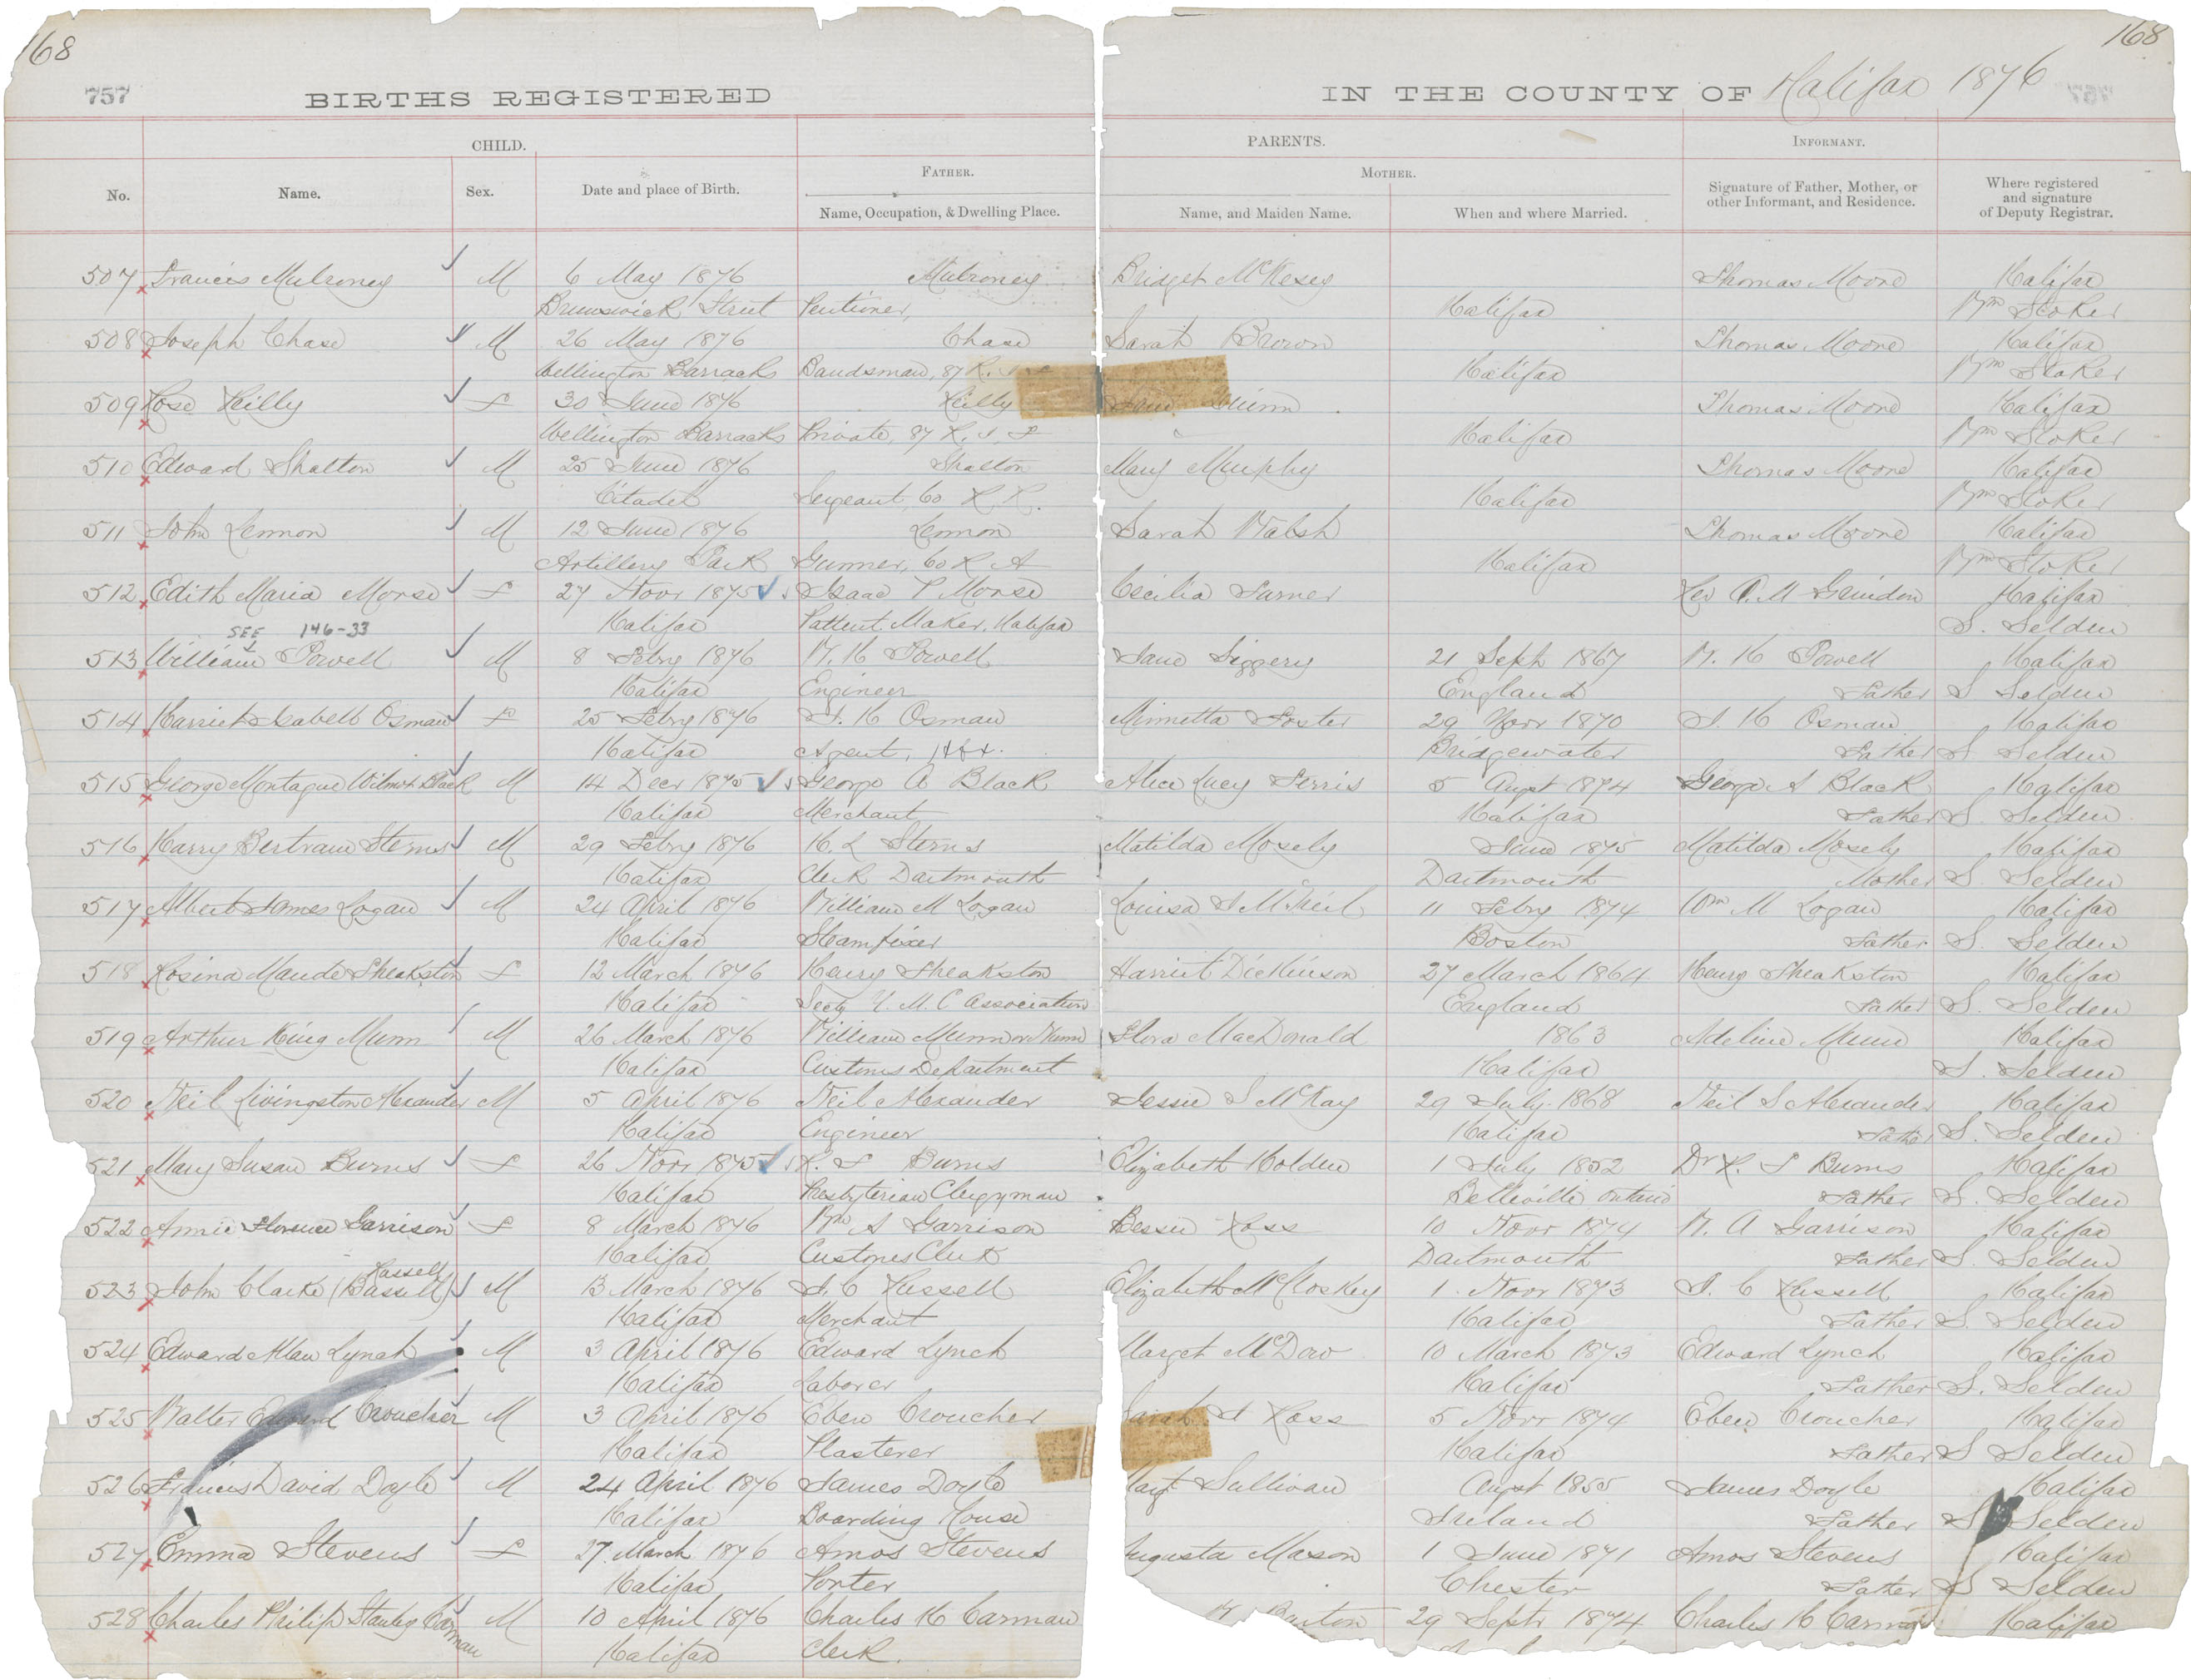 168 168
757 BIRTHS REGISTERED IN THE COUNTY OF Halifax 1876 757
CHILD. PARENTS. INFORMANT.
FATHER. MOTHER.
No. Name. Sex. Date and place of Birth. Name, Occupation, & Dwelling Place. Name, and Maiden Name. When and where Married. Signature of Father, Mother, or other Informant, and Residence. Where registered and signature of Deputy Registrar.
507 Francis Mulroney M 6 May 1876 Mulroney Bridget McKesey Thomas Moore Halifax
Brunswick Street Halifax Wm Stoker
508 Joseph Chase M 26 May 1876 Chase Sarah Brown Thomas Moore Halifax
Wellington Barracks Bandsman, 87 R. Halifax Wm Stoker
509 Rose Reilly F 30 June 1876 Reilly Jane Quinn Thomas Moore Halifax
Wellington Barracks Private, 87 R. I. F Halifax Wm Stoker
510 Edward Shalton M 25 June 1876 Shalton Mary Murphy Thomas Moore Halifax
Citadel Sergeant, 60 R. R. Halifax Wm Stoker
511 John Lennon M 12 June 1876 Lennon Sarah Walsh Thomas Moore Halifax
Artillery Park Gunner, 60 R A Halifax Wm Stoker
512 Edith Maria Morse F 27 Novr 1875 Isaac P Morse Cecilia Turner Rev O. M Grindon Halifax
Halifax Pattent Maker, Halifax S. Selden
SEE 146-33
513 William Powell M 8 Febry 1876 W. H Powell Jane Siggery 21 Sept 1867 W. H Powell Halifax
Halifax Engineer England Father S Selden
514 Harriet Isabell Osman F 25 Febry 1876 J. H Osman Minnetta Foster 29 Novr 1870 J. H Osman Halifax
Halifax Agent, Hfx. Bridgewater Father S Selden
515 George Montague Wilmot Black M 14 Decr 1875 George A Black Alice Lucy Ferris 5 Augst 1874 George A Black Halifax
Halifax Merchant Halifax Father S. Selden
516 Harry Bertram Sterns M 29 Febry 1876 H. L Sterns Matilda Mosely June 1875 Matilda Mosely Halifax
Halifax Clerk Dartmouth Dartmouth Mother S Selden
517 Albert James Logan M 24 April 1876 William M Logan Louisa J McNeil 11 Febry 1874 Wm M Logan Halifax
Halifax Steamfixer Boston Father S. Selden
518 Rosina Maude Sheakston F 12 March 1876 Henry Sheakston Harriet Dickinson 27 March 1864 Henry Sheakston Halifax
Halifax Secty Y. M. C Association England Father S. Selden
519 Arthur King Munn M 26 March 1876 William Munn or Nunn Flora MacDonald 1863 Adeline Munn Halifax
Halifax Customs Department Halifax S. Selden
520 Neil Livingston Alexander M 5 April 1876 Neil Alexander Jessie S McKay 29 July 1868 Neil S Alexander Halifax
Halifax Engineer Halifax Father S. Selden
521 Mary Susan Burns F 26 Novr 1875 R. F Burns Elizabeth Holden 1 July 1852 Dr R. F Burns Halifax
Halifax Presbyterian Clergyman Belleville Ontario Father S. Selden
522 Annie Florence Garrison F 8 March 1876 Wm A Garrison Bessie Ross 10 Novr 1874 W. A Garrison Halifax
Halifax Customs Clerk Dartmouth Father S. Selden
Russell
523 John Clarke (Bassell) M 13 March 1876 J. C Russell Elizabeth McCloskey 1 Novr 1873 J. C Russell Halifax
Halifax Merchant Halifax Father S. Selden
524 Edward Allan Lynch M 3 April 1876 Edward Lynch Marget McDow 10 March 1873 Edward Lynch Halifax
Halifax Laborer Halifax Father S. Selden
525 Walter Edmund Croucher M 3 April 1876 Eben Croucher Sarah A Ross 5 Novr 1874 Eben Croucher Halifax
Halifax Plasterer Halifax Father S Selden
526 Francis David Doyle M 24 April 1876 James Doyle Sullivan Augst 1855 James Doyle Halifax
Halifax Boarding House Ireland Father S Selden
527 Emma Stevens F 27 March 1876 Amos Stevens Augusta Mason 1 June 1871 Amos Stevens Halifax
Halifax Porter Chester Father S Selden
528 Charles Philip Stanley Carman M 10 April 1876 Charles H Carman Burton 29 Septr 1874 Charles H Carman Halifax
Halifax Clerk.